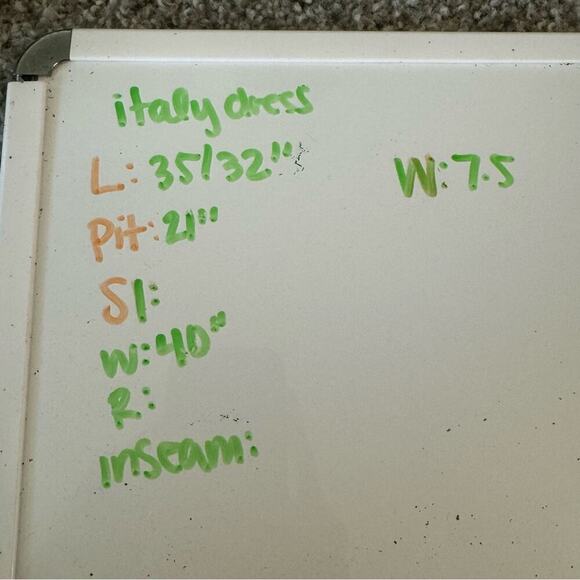 italy dress
L: 35/32"
W: 7.5
Pit: 21"
Sl:
W: 40"
R:
inseam: